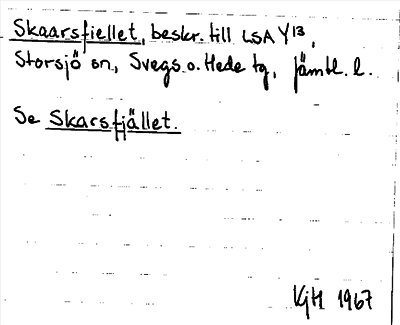 Skaarsfiellet, beskr. till LSA Y¹³,
Storsjö sn., Svegs o. Hede tg, Jämtl. l.
Se Skarsfjället.
KjH 1967